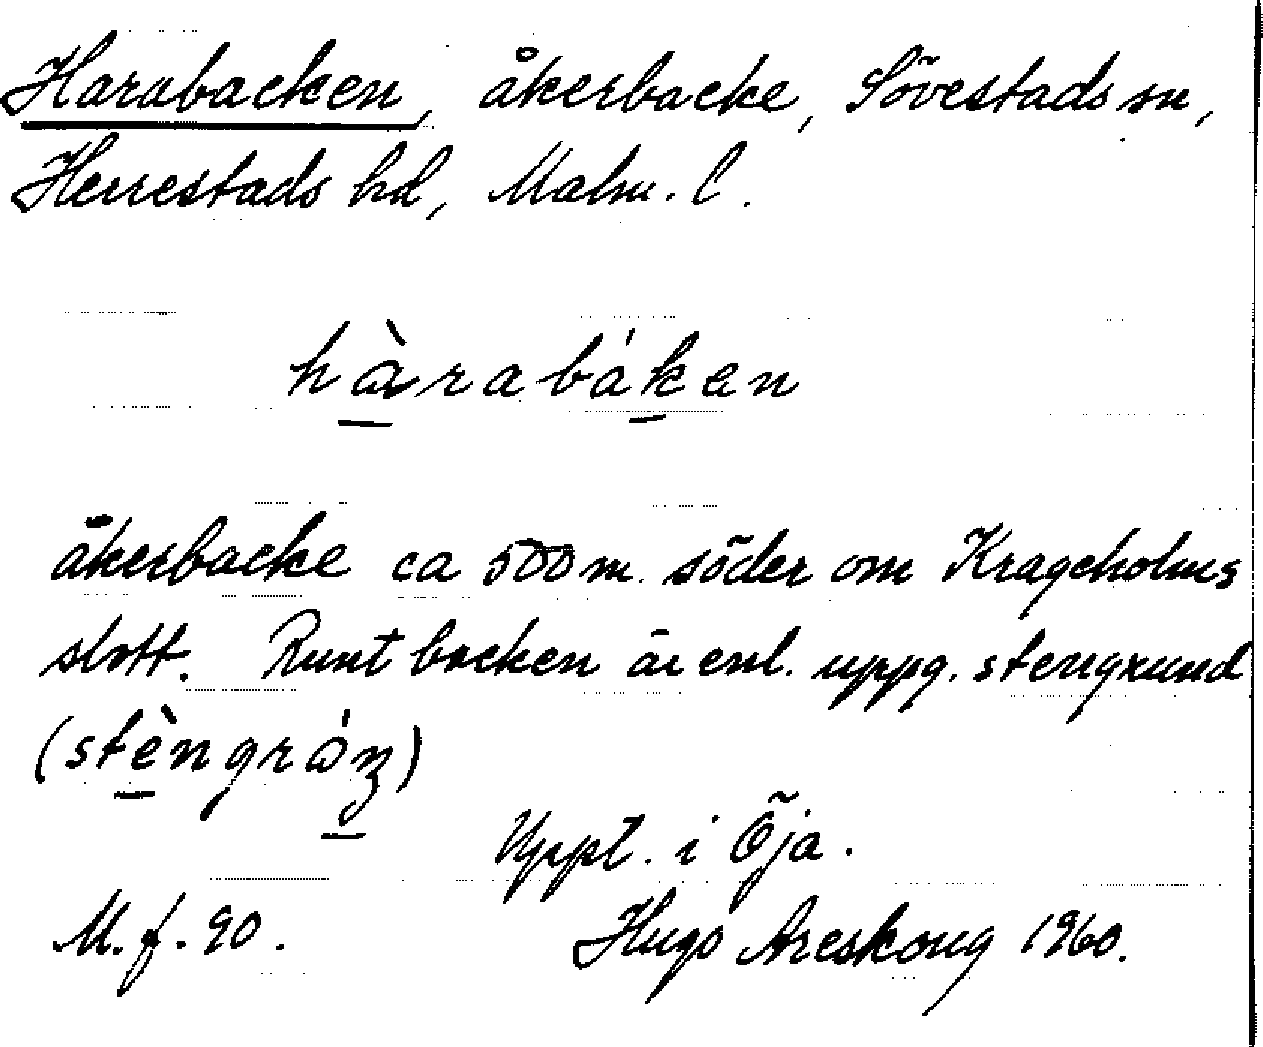 Harabacken, åkerbacke, Sövestads sn,
Herrestads hd, Malm. l.
hàrabáken
åkerbacke ca 500 m. söder om Krageholms
slott. Runt backen är enl. uppg. stengrund
Uppt. i Öja.
M. f. 90. Hugo Areskoug 1960.